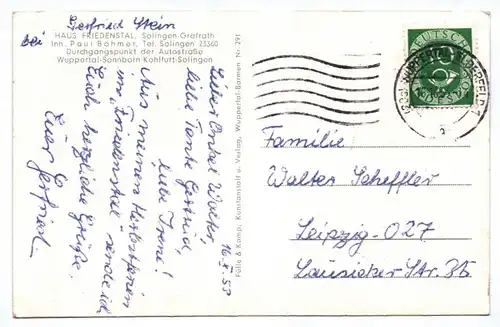 Gerfried Stein
bei
HAUS FRIEDENSTAL, Solingen-Gräfrath
Inh. Paul Böhmer, Tel. Solingen 23360
Durchgangspunkt der Autostraße
Wuppertal-Sonnborn Kohlfurt-Solingen
16.X.53
Lieber Onkel Walter,
liebe Tante Gertrud,
liebe Irene!
Aus meinen Herbstferien
im „Friedenstal“ sende ich
Euch herzliche Grüße.
Euer Gerfried.
Fülle & Kamp, Kunstanstalt u. Verlag, Wuppertal-Barmen Nr. 291
DEUTSCHE
BUNDESPOST
10
WUPPERTAL-ELBERFELD 1
Familie
Walter Scheffler
Leipzig-O27
Lausicker Str. 35